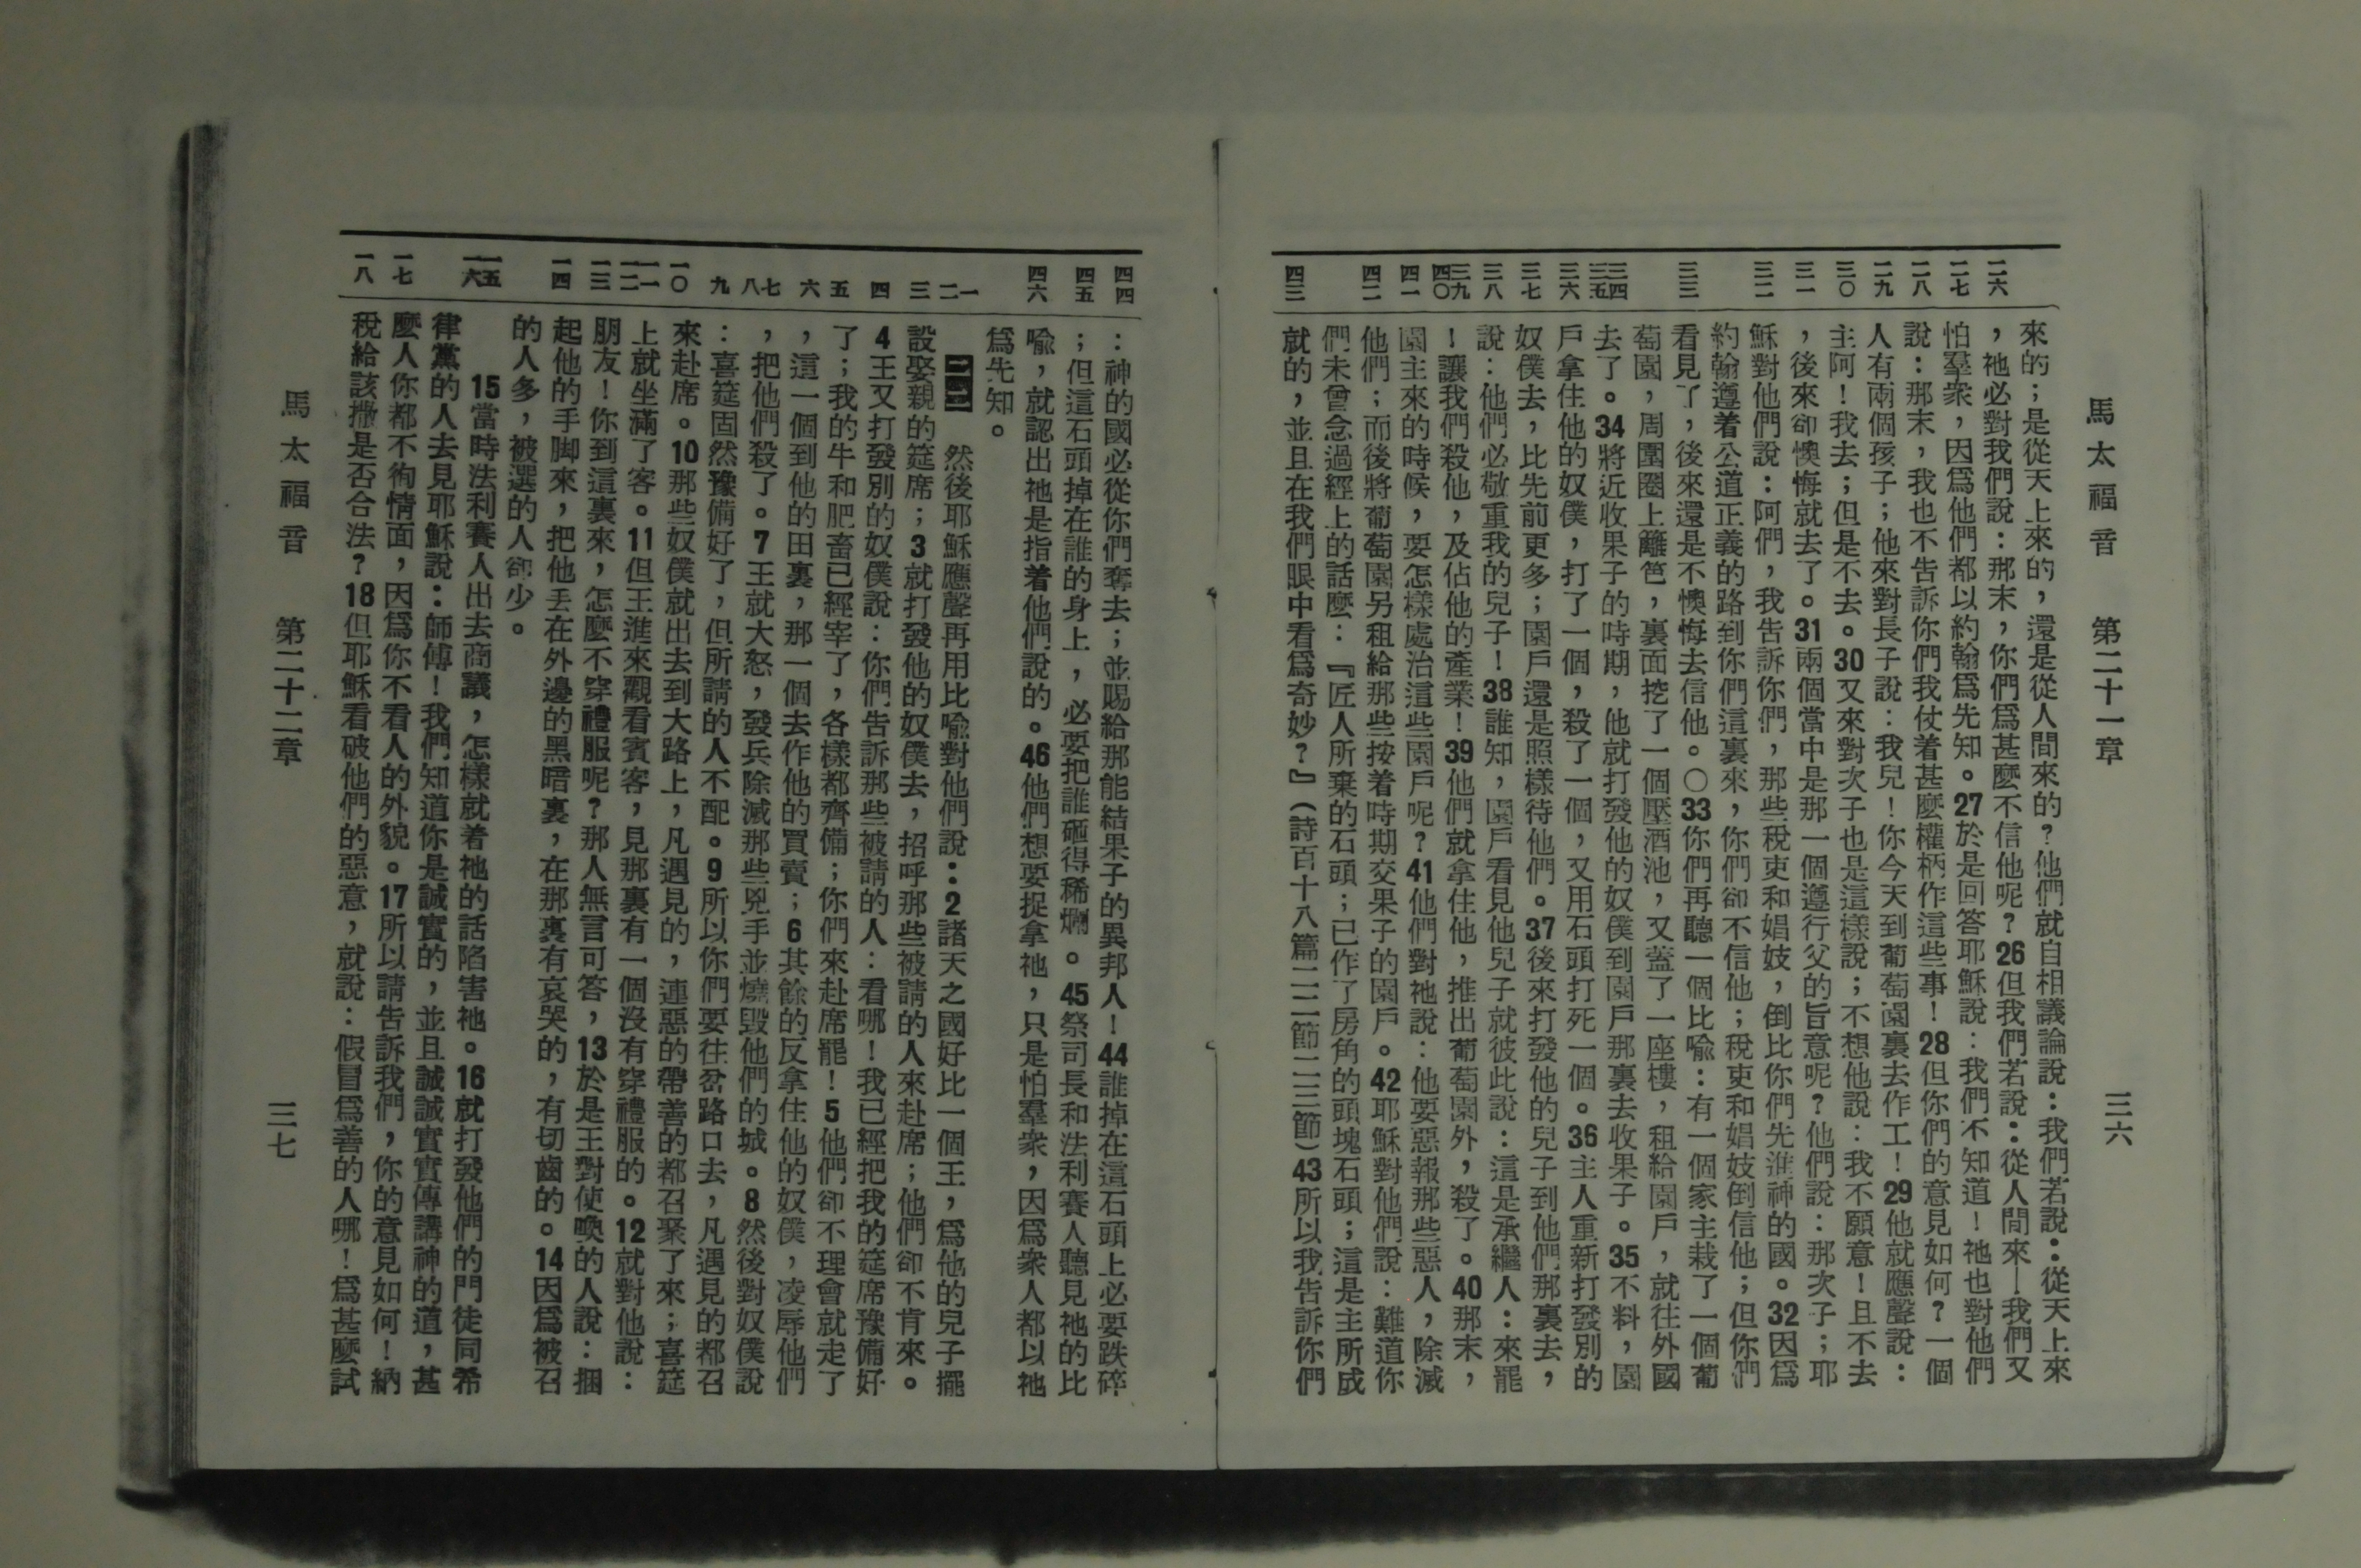 馬太福音 第二十一章 三六
二六 二七 二八 二九 三〇 三一 三二 三三 三四 三五 三六 三七 三八 三九 四〇 四一 四二 四三
來的；是從天上來的，還是從人間來的？他們就自相議論說：我們若說：從天上來
，祂必對我們說：那末，你們爲甚麼不信他呢？26但我們若說：從人間來—我們又
怕羣衆，因爲他們都以約翰爲先知。27於是回答耶穌說：我們不知道！祂也對他們
說：那末，我也不告訴你們我仗着甚麼權柄作這些事！28但你們的意見如何？一個
人有兩個孩子；他來對長子說：我兒！你今天到葡萄園裏去作工！29他就應聲說：
主阿！我去；但是不去。30又來對次子也是這樣說；不想他說：我不願意！且不去
，後來卻懊悔就去了。31兩個當中是那一個遵行父的旨意呢？他們說：那次子；耶
穌對他們說：阿們，我告訴你們，那些稅吏和娼妓，倒比你們先進神的國。32因爲
約翰遵着公道正義的路到你們這裏來，你們卻不信他；稅吏和娼妓倒信他；但你們
看見了，後來還是不懊悔去信他。〇33你們再聽一個比喻：有一個家主栽了一個葡
萄園，周圍圈上籬笆，裏面挖了一個壓酒池，又蓋了一座樓，租給園戶，就往外國
去了。34將近收果子的時期，他就打發他的奴僕到園戶那裏去收果子。35不料，園
戶拿住他的奴僕，打了一個，殺了一個，又用石頭打死一個。36主人重新打發別的
奴僕去，比先前更多；園戶還是照樣待他們。37後來打發他的兒子到他們那裏去，
說：他們必敬重我的兒子！38誰知，園戶看見他兒子就彼此說：這是承繼人：來罷
！讓我們殺他，及佔他的產業！39他們就拿住他，推出葡萄園外，殺了。40那末，
園主來的時候，要怎樣處治這些園戶呢？41他們對祂說：他要惡報那些惡人，除滅
他們；而後將葡萄園另租給那些按着時期交果子的園戶。42耶穌對他們說：難道你
們未曾念過經上的話麼：『匠人所棄的石頭；已作了房角的頭塊石頭；這是主所成
就的，並且在我們眼中看爲奇妙？』（詩百十八篇二二節二三節）43所以我告訴你們
四四 四五 四六 一 二 三 四 五 六 七 八 九 一〇 一一 一二 一三 一四 一五 一六 一七 一八
：神的國必從你們奪去；並賜給那能結果子的異邦人！44誰掉在這石頭上必要跌碎
；但這石頭掉在誰的身上，必要把誰砸得稀爛。45祭司長和法利賽人聽見祂的比
喻，就認出祂是指着他們說的。46他們想要捉拿祂，只是怕羣衆，因爲衆人都以祂
爲先知。
二二 然後耶穌應聲再用比喻對他們說：2諸天之國好比一個王，爲他的兒子擺
設娶親的筵席；3就打發他的奴僕去，招呼那些被請的人來赴席；他們卻不肯來。
4王又打發別的奴僕說：你們告訴那些被請的人：看哪！我已經把我的筵席豫備好
了；我的牛和肥畜已經宰了，各樣都齊備；你們來赴席罷！5他們卻不理會就走了
，這一個到他的田裏，那一個去作他的買賣；6其餘的反拿住他的奴僕，凌辱他們
，把他們殺了。7王就大怒，發兵除滅那些兇手並燒毀他們的城。8然後對奴僕說
：喜筵固然豫備好了，但所請的人不配。9所以你們要往岔路口去，凡遇見的都召
來赴席。10那些奴僕就出去到大路上，凡遇見的，連惡的帶善的都召聚了來；喜筵
上就坐滿了客。11但王進來觀看賓客，見那裏有一個沒有穿禮服的。12就對他說：
朋友！你到這裏來，怎麼不穿禮服呢？那人無言可答，13於是王對使喚的人說：捆
起他的手脚來，把他丟在外邊的黑暗裏，在那裏有哀哭的，有切齒的。14因爲被召
的人多，被選的人卻少。
15當時法利賽人出去商議，怎樣就着祂的話陷害祂。16就打發他們的門徒同希
律黨的人去見耶穌說：師傅！我們知道你是誠實的，並且誠誠實實傳講神的道，甚
麼人你都不徇情面，因爲你不看人的外貌。17所以請告訴我們，你的意見如何！納
稅給該撒是否合法？18但耶穌看破他們的惡意，就說：假冒爲善的人哪！爲甚麼試
馬太福音 第二十二章 三七